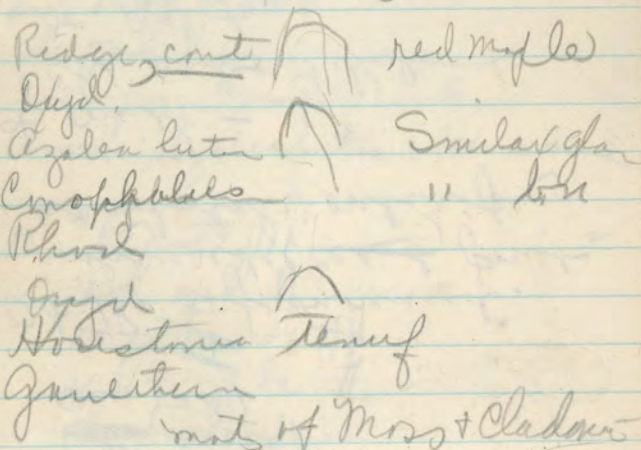 Ridge, cont red maple
Oxyd.
Azalea lute Smilax gla
Conopholis " bn
Rhod
Oxyd
Houstonia Tenuif
Gaultheria
mats of Moss & Cladonia